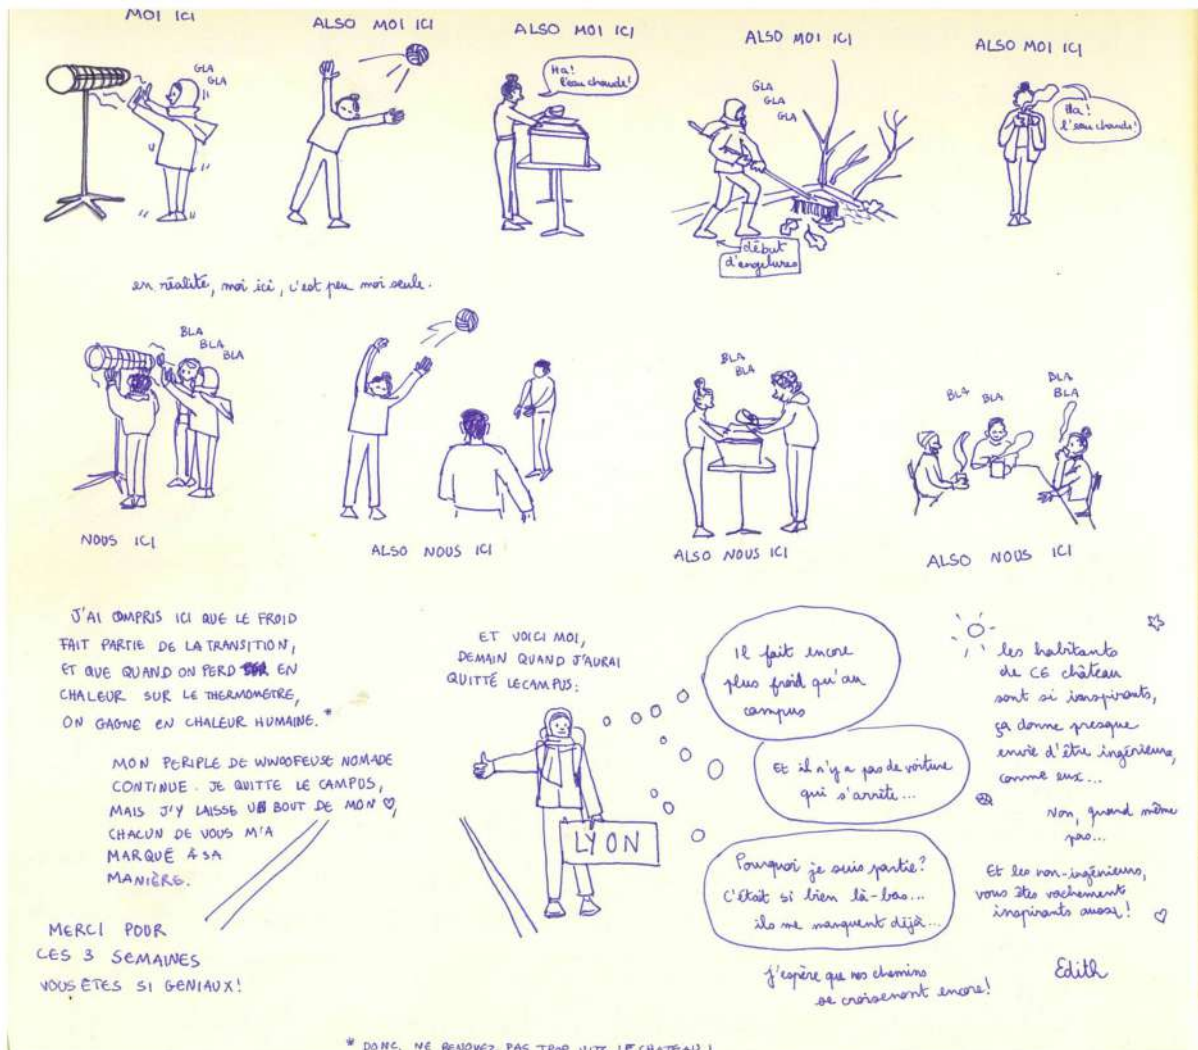 MOI ICI
ALSO MOI ICI
ALSO MOI ICI
ALSO MOI ICI
ALSO MOI ICI
GLA
GLA
Ha!
l'eau chaude!
GLA
GLA
GLA
début
d'engelures
Ha!
l'eau chaude!
en réalité, moi ici, c'est peu moi seule.
BLA
BLA
BLA
BLA
BLA
BLA
BLA
BLA
BLA
NOUS ICI
ALSO NOUS ICI
ALSO NOUS ICI
ALSO NOUS ICI
J'AI COMPRIS ICI QUE LE FROID
FAIT PARTIE DE LA TRANSITION,
ET QUE QUAND ON PERD EN
CHALEUR SUR LE THERMOMETRE,
ON GAGNE EN CHALEUR HUMAINE.*
MON PERIPLE DE WWOOFEUSE NOMADE
CONTINUE. JE QUITTE LE CAMPUS,
MAIS J'Y LAISSE UN BOUT DE MON ♡,
CHACUN DE VOUS M'A
MARQUÉ À SA
MANIÈRE.
MERCI POUR
CES 3 SEMAINES
VOUS ÊTES SI GENIAUX!
ET VOICI MOI,
DEMAIN QUAND J'AURAI
QUITTÉ LE CAMPUS:
LYON
Il fait encore
plus froid qu'au
campus
Et il n'y a pas de voiture
qui s'arrête...
Pourquoi je suis partie?
C'était si bien là-bas...
ils me manquent déjà...
J'espère que nos chemins
se croiseront encore!
les habitants
de CE château
sont si inspirants,
ça donne presque
envie d'être ingénieure,
comme eux...
Non, quand même
pas...
Et les non-ingénieurs,
vous êtes vachement
inspirants aussi! ♡
Edith
* DONC, NE RENOVEZ PAS TROP VITE LE CHATEAU!